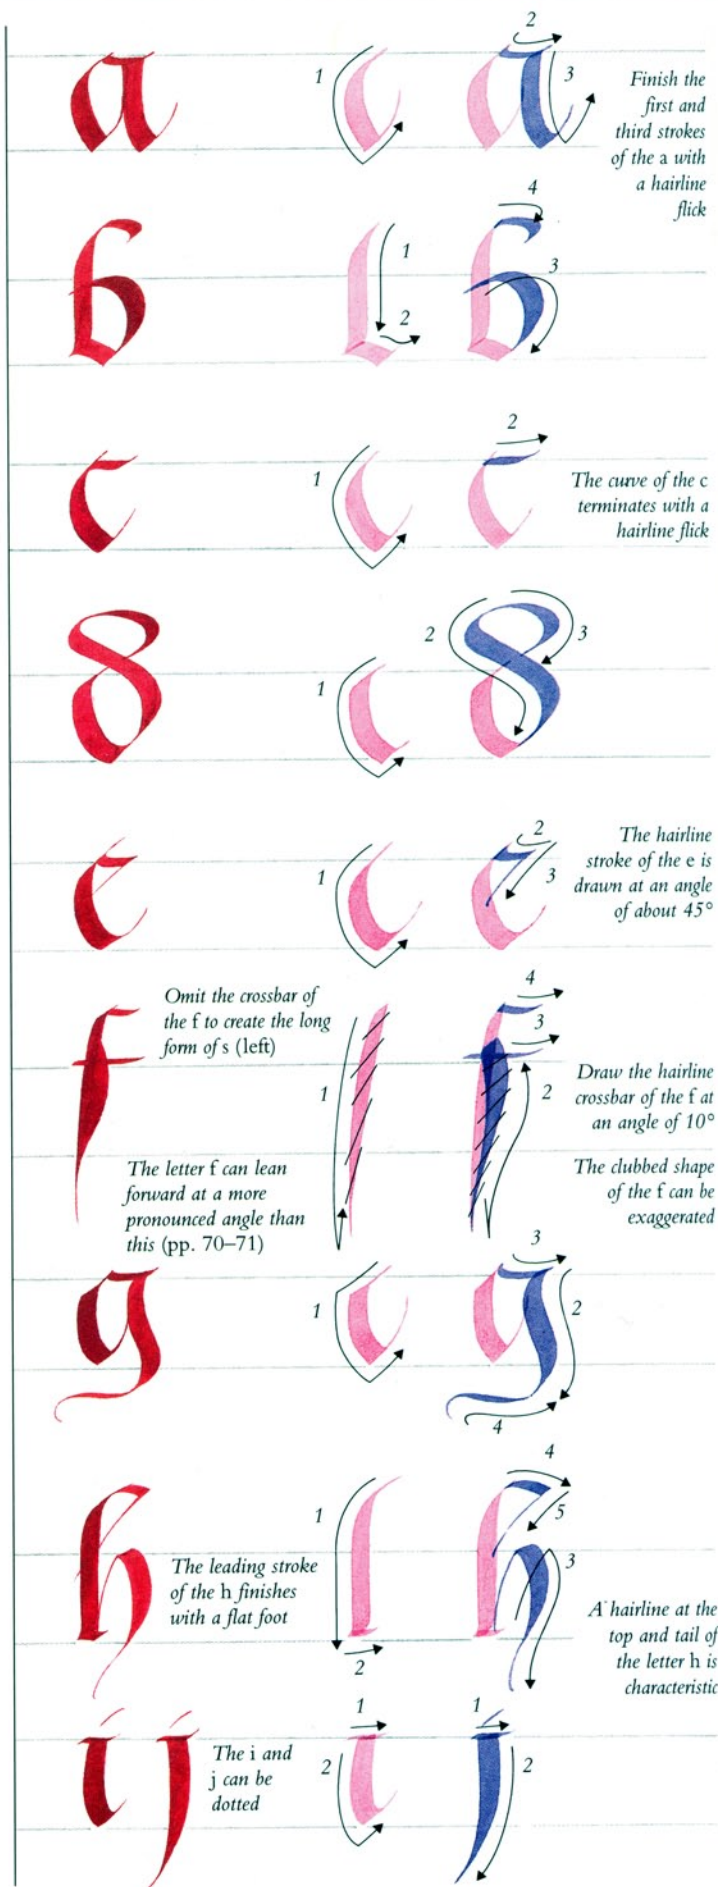 a
1
2
3
Finish the
first and
third strokes
of the a with
a hairline
flick
b
1
2
4
3
c
1
2
The curve of the c
terminates with a
hairline flick
d
1
2
3
e
1
2
3
The hairline
stroke of the e is
drawn at an angle
of about 45°
f
Omit the crossbar of
the f to create the long
form of s (left)
The letter f can lean
forward at a more
pronounced angle than
this (pp. 70–71)
1
4
3
2
Draw the hairline
crossbar of the f at
an angle of 10°
The clubbed shape
of the f can be
exaggerated
g
1
3
2
4
h
The leading stroke
of the h finishes
with a flat foot
1
2
4
5
3
A hairline at the
top and tail of
the letter h is
characteristic
i j
The i and
j can be
dotted
1
2
1
2